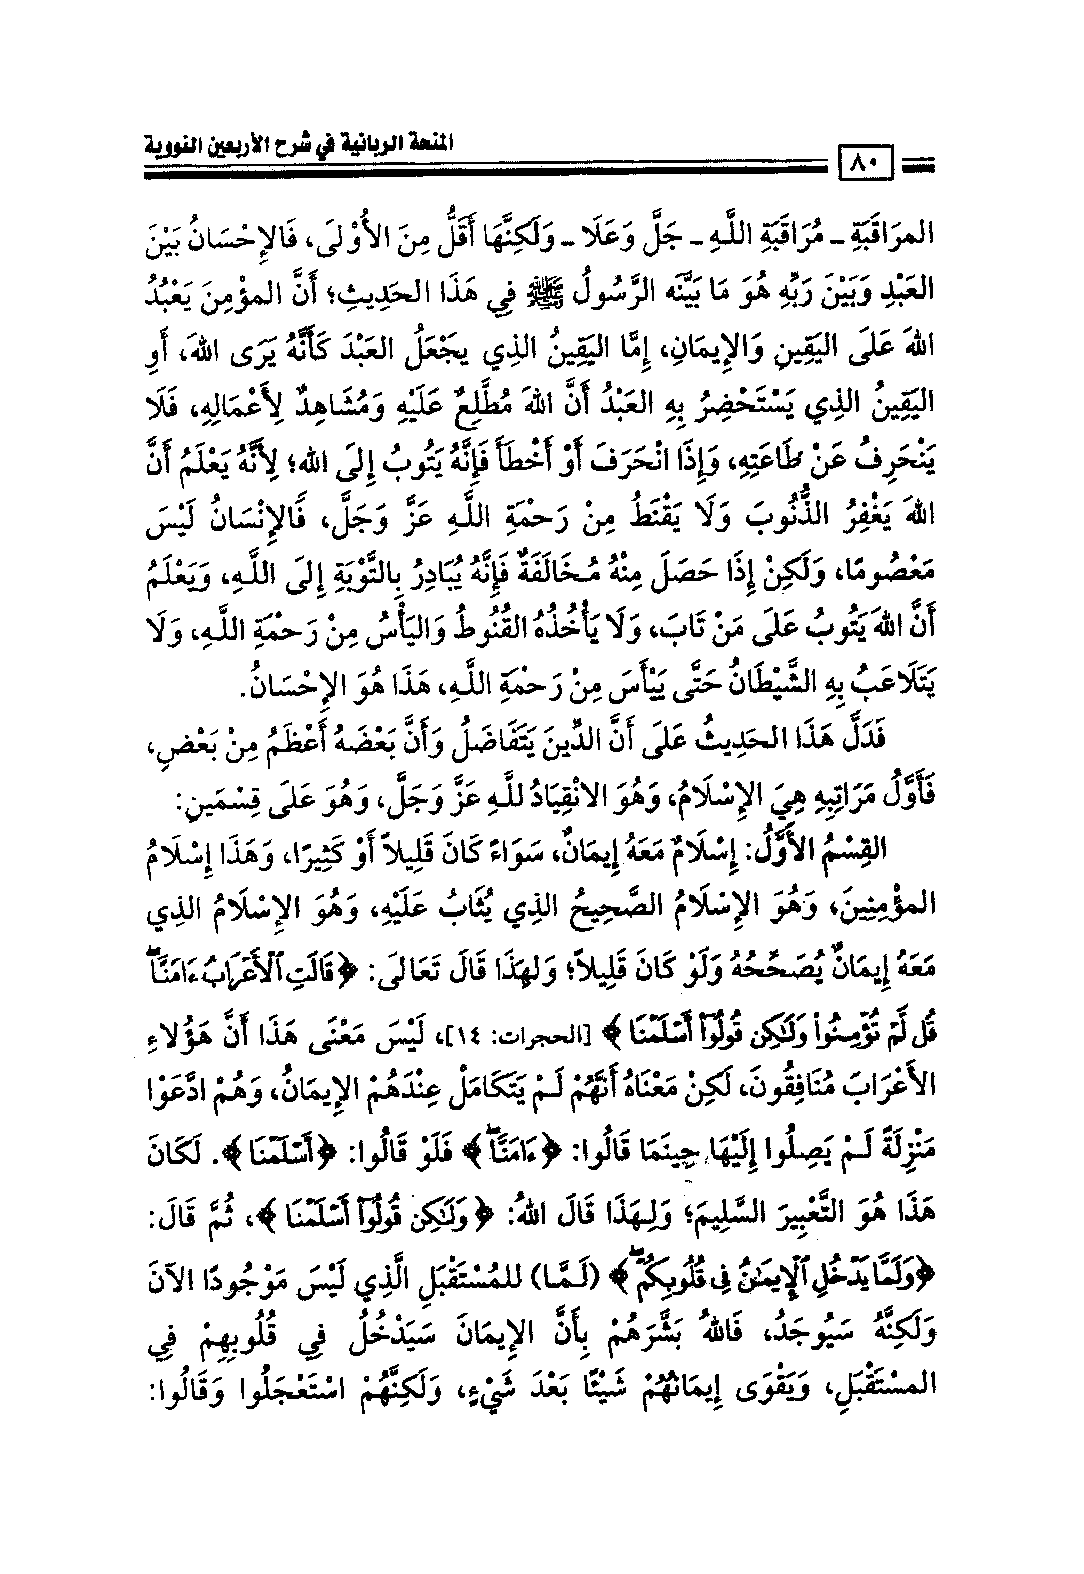 المنحة الربانية في شرح الأربعين النووية
٨٠
المرَاقَبَةِ ـ مُرَاقَبَةِ اللَّـهِ ـ جَلَّ وَعَلَا ـ وَلَكِنَّهَا أَقَلُّ مِنَ الأُوْلَى، فَالإِحْسَانُ بَيْنَ
العَبْدِ وَبَيْنَ رَبِّهِ هُوَ مَا بَيَّنَه الرَّسُولُ ﷺ فِي هَذَا الحَدِيثِ؛ أَنَّ المؤْمِنَ يَعْبُدُ
اللهَ عَلَى اليَقِينِ وَالإِيمَانِ، إِمَّا اليَقِينُ الذِي يجْعَلُ العَبْدَ كَأَنَّهُ يَرَى اللهَ، أَوِ
اليَقِينُ الذِي يَسْتَحْضِرُ بِهِ العَبْدُ أَنَّ اللهَ مُطَّلِعٌ عَلَيْهِ وَمُشَاهِدٌ لِأَعْمَالِهِ، فَلَا
يَنْحَرِفُ عَنْ طَاعَتِهِ، وَإِذَا انْحَرَفَ أَوْ أَخْطَأَ فَإِنَّهُ يَتُوبُ إِلَى اللهِ؛ لِأَنَّهُ يَعْلَمُ أَنَّ
اللهَ يَغْفِرُ الذُّنُوبَ وَلَا يَقْنَطُ مِنْ رَحْمَةِ اللَّـهِ عَزَّ وَجَلَّ، فَالإِنْسَانُ لَيْسَ
مَعْصُومًا، وَلَكِنْ إِذَا حَصَلَ مِنْهُ مُخَالَفَةٌ فَإِنَّهُ يُبَادِرُ بِالتَّوْبَةِ إِلَى اللَّـهِ، وَيَعْلَمُ
أَنَّ اللهَ يَتُوبُ عَلَى مَنْ تَابَ، وَلَا يَأْخُذُهُ القُنُوطُ وَاليَأْسُ مِنْ رَحْمَةِ اللَّـهِ، وَلَا
يَتَلَاعَبُ بِهِ الشَّيْطَانُ حَتَّى يَيْأَسَ مِنْ رَحْمَةِ اللَّـهِ، هَذَا هُوَ الإِحْسَانُ.
فَدَلَّ هَذَا الحَدِيثُ عَلَى أَنَّ الدِّينَ يَتَفَاضَلُ وَأَنَّ بَعْضَهُ أَعْظَمُ مِنْ بَعْضٍ،
فَأَوَّلُ مَرَاتِبِهِ هِيَ الإِسْلَامُ، وَهُوَ الانْقِيَادُ للَّـهِ عَزَّ وَجَلَّ، وَهُوَ عَلَى قِسْمَينِ:
القِسْمُ الأَوَّلُ: إِسْلَامٌ مَعَهُ إِيمَانٌ، سَوَاءً كَانَ قَلِيلاً أَوْ كَثِيرًا، وَهَذَا إِسْلَامُ
المؤْمِنِينَ، وَهُوَ الإِسْلَامُ الصَّحِيحُ الذِي يُثَابُ عَلَيْهِ، وَهُوَ الإِسْلَامُ الذِي
مَعَهُ إِيمَانٌ يُصَحِّحُهُ وَلَوْ كَانَ قَلِيلاً؛ وَلهَذَا قَالَ تَعَالَى: ﴿قَالَتِ ٱلْأَعْرَابُ ءَامَنَّا ۖ
قُل لَّمْ تُؤْمِنُوا۟ وَلَٰكِن قُولُوٓا۟ أَسْلَمْنَا﴾ [الحجرات: ١٤]، لَيْسَ مَعْنَى هَذَا أَنَّ هَؤُلاءِ
الأَعْرَابَ مُنَافِقُونَ، لَكِنْ مَعْنَاهُ أَنَّهُمْ لَمْ يَتَكَامَلْ عِنْدَهُمْ الإِيمَانُ، وَهُمْ ادَّعَوْا
مَنْزِلَةً لَـمْ يَصِلُوا إِلَيْهَا حِينَمَا قَالُوا: ﴿ءَامَنَّا ۖ﴾ فَلَوْ قَالُوا: ﴿أَسْلَمْنَا﴾. لَكَانَ
هَذَا هُوَ التَّعْبِيرَ السَّلِيمَ؛ وَلِـهَذَا قَالَ اللهُ: ﴿وَلَٰكِن قُولُوٓا۟ أَسْلَمْنَا﴾، ثُمَّ قَالَ:
﴿وَلَمَّا يَدْخُلِ ٱلْإِيمَٰنُ فِى قُلُوبِكُمْ ۖ﴾ (لَـمَّـا) للمُسْتَقْبَلِ الَّذِي لَيْسَ مَوْجُودًا الآنَ
وَلَكِنَّهُ سَيُوجَدُ، فَاللهُ بَشَّرَهُمْ بِأَنَّ الإِيمَانَ سَيَدْخُلُ فِي قُلُوبِهِمْ فِي
المسْتَقْبَلِ، وَيَقْوَى إِيمَانُهُمْ شَيْئًا بَعْدَ شَيْءٍ، وَلَكِنَّهُمْ اسْتَعْجَلُوا وَقَالُوا: